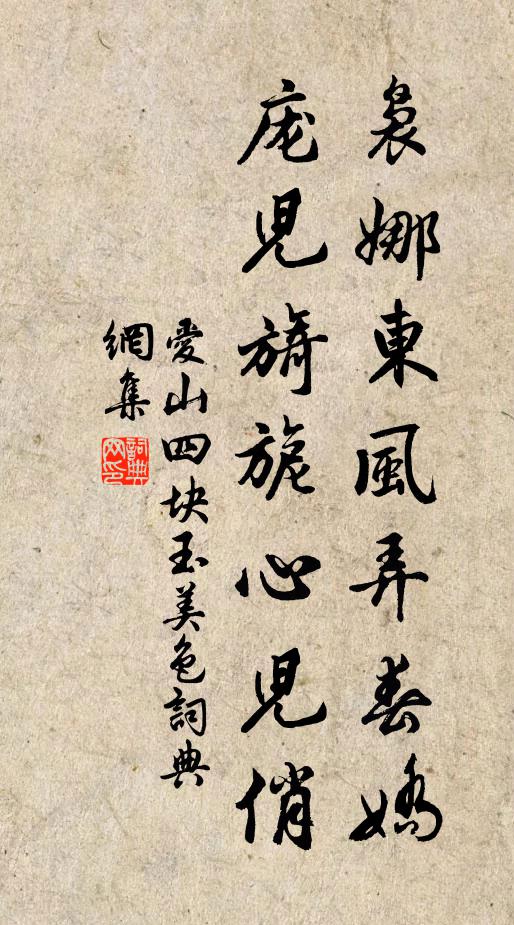 裊娜東風弄春嬌
庞兒旖旎心兒俏
愛山四块玉美色詞典
網集
詞典
网印